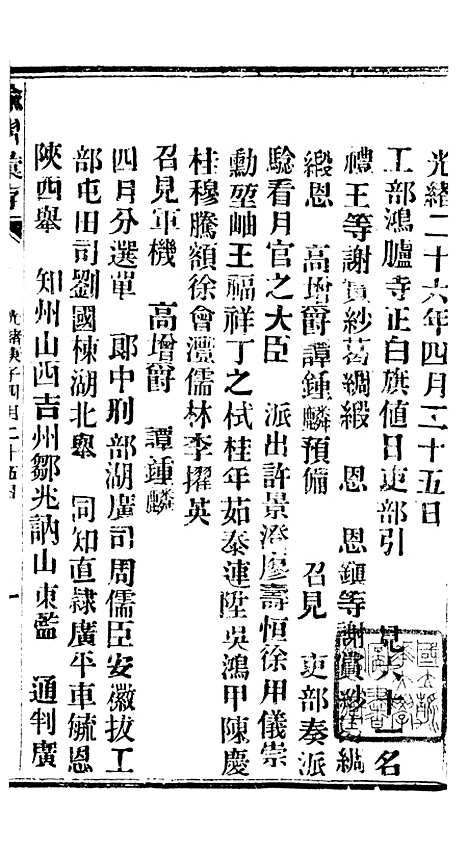 光緒二十六年四月二十五日
工部鴻臚寺正白旗値日吏部引　見六十一名
禮王等謝賞紗葛綢緞　恩　恩鎮等謝賞紗葛綢
緞恩　高增爵譚鍾麟預備　召見　吏部奏派
驗看月官之大臣　派出許景澄廖壽恒徐用儀崇
勳堃岫王福祥丁之栻桂年茹泰連陞吳鴻甲陳慶
桂穆騰額徐會灃儒林李擢英
召見軍機　高增爵　譚鍾麟
四月分選單　郎中刑部湖廣司周儒臣安徽拔工
部屯田司劉國棟湖北舉　同知直隸廣平車毓恩
陝西舉　知州山西吉州鄒兆訥山東監　通判廣
諭摺彙存
光緒庚子四月二十五日
一